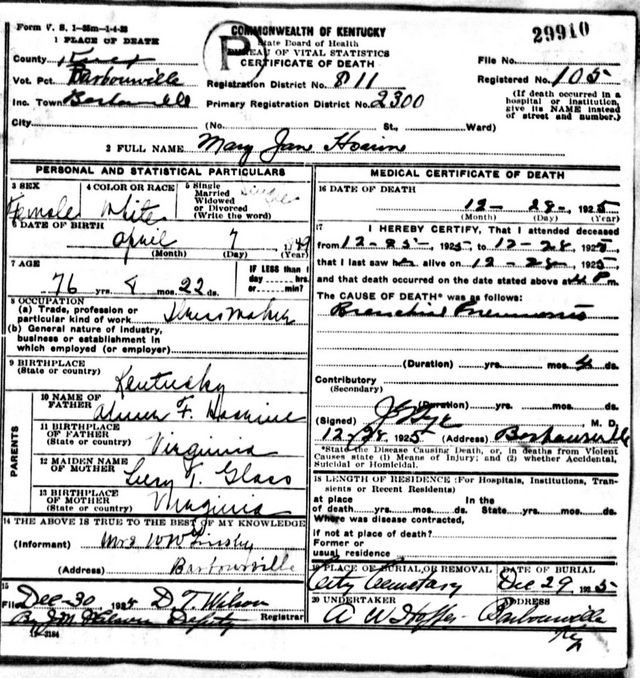 Form V. S. 1-35m-1-4-22
1 PLACE OF DEATH
COMMONWEALTH OF KENTUCKY
State Board of Health
BUREAU OF VITAL STATISTICS
CERTIFICATE OF DEATH
P
29910
County Knox
File No.
Vot. Pct. Barbourville
Registration District No. 811
Registered No. 105
Inc. Town Barbourville
Primary Registration District No. 2300
(If death occurred in a
hospital or institution,
give its NAME instead
of street and number.)
City (No. St., Ward)
2 FULL NAME Mary Jane
PERSONAL AND STATISTICAL PARTICULARS
3 SEX
Female
4 COLOR OR RACE
White
5 Single
Married
Widowed
or Divorced
(Write the word)
Single
6 DATE OF BIRTH
April 7, 1849
(Month) (Day) (Year)
7 AGE
76 8 mos. 22 ds.
IF LESS than 1
day hrs.
or min.?
8 OCCUPATION
(a) Trade, profession or
particular kind of work Dressmaker
(b) General nature of industry,
business or establishment in
which employed (or employer)
9 BIRTHPLACE
(State or country)
Kentucky
PARENTS
10 NAME OF
FATHER
F.
11 BIRTHPLACE
OF FATHER
(State or country)
Virginia
12 MAIDEN NAME
OF MOTHER
Lucy T. Glass
13 BIRTHPLACE
OF MOTHER
(State or country)
Virginia
14 THE ABOVE IS TRUE TO THE BEST OF MY KNOWLEDGE
(Informant) Mrs W W Tinsley
(Address) Barbourville
15
Filed Dec-30, 192 D T. Wilson
Registrar
By J M Wilson Deputy
19-3184
MEDICAL CERTIFICATE OF DEATH
16 DATE OF DEATH
12- 28-, 1925
(Month) (Day) (Year)
17 I HEREBY CERTIFY, That I attended deceased
from 12-25-, 1925 to 12-28, 1925
that I last saw her alive on 12-28, 1925
and that death occurred on the date stated above at P m.
The CAUSE OF DEATH* was as follows:
Bronchial Pneumonia
(Duration) yrs. mos. 4 ds.
Contributory
(Secondary)
(Duration) yrs. mos. ds.
(Signed) M. D.
12/28 1925 (Address) Barbourville
*State the Disease Causing Death, or, in deaths from Violent
Causes state (1) Means of Injury; and (2) whether Accidental,
Suicidal or Homicidal.
18 LENGTH OF RESIDENCE (For Hospitals, Institutions, Tran-
sients or Recent Residents)
at place In the
of death yrs. mos. ds. State yrs. mos. ds.
Where was disease contracted,
if not at place of death?
Former or
usual residence
19 PLACE OF BURIAL OR REMOVAL
City Cemetary
DATE OF BURIAL
Dec 29 1925
20 UNDERTAKER
A W Hopper
ADDRESS
Barbourville
Ky